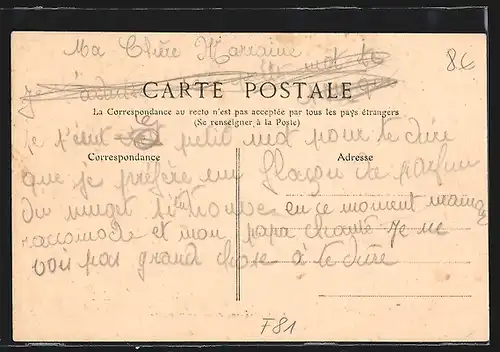 Ma Chère Marraine
8€
CARTE POSTALE
La Correspondance au recto n'est pas acceptée par tous les pays étrangers
(Se renseigner à la Poste)
Je t'écrit petit mot pour te dire
Correspondance
Adresse
que je préfère un flacon de parfum
du muget si tu trouve en ce moment maman
raccomode et mon papa chante Je ne
vois pas grand chose à te dire
F81